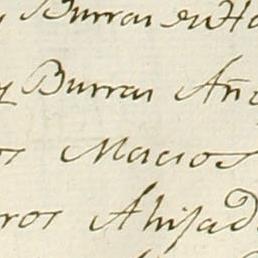 Burras en Ha
y Burras Añ
os Macios
ros Ahijad